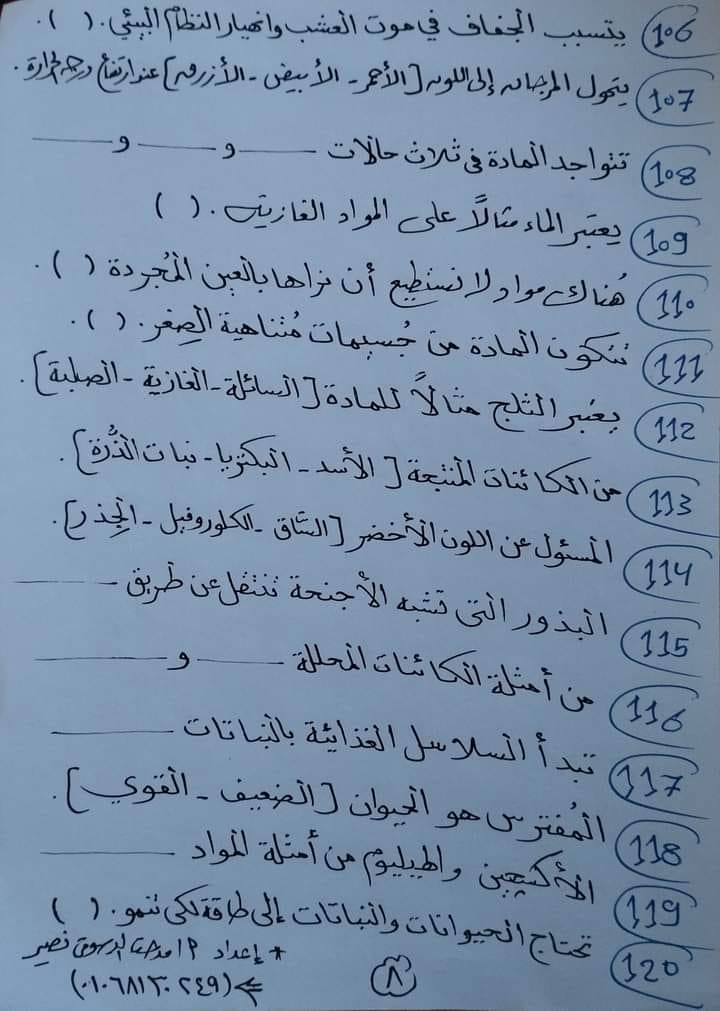 106 يتسبب الجفاف في موت العشب وانهيار النظام البيئي. ( ).
107 يتحول المرجان إلى اللون [الأحمر - الأبيض - الأزرق] عند ارتفاع درجة الحرارة.
108 تتواجد المادة في ثلاث حالات ـــــ و ـــــ و ـــــ
109 يعتبر الماء مثالاً على المواد الغازية. ( )
110 هُناك مواد لا نستطيع أن نراها بالعين المُجردة ( ).
111 تتكون المادة من جُسيمات مُتناهية الصِغر. ( ).
112 يعتبر الثلج مثالاً للمادة [السائلة - الغازية - الصلبة].
113 من الكائنات المنتجة [الأسد - البكتريا - نبات الذُّرة].
114 المسئول عن اللون الأخضر [السَّاق - الكلوروفيل - الجِذر].
115 البذور التي تشبه الأجنحة تنتقل عن طريق ـــــ
116 من أمثلة الكائنات المحللة ـــــ و ـــــ
117 تبدأ السلاسل الغذائية بالنباتات ـــــ
118 المُفترس هو الحيوان [الضعيف - القوي].
119 الأكسجين والهيليوم من أمثلة المواد ـــــ
120 تحتاج الحيوانات والنباتات إلى طاقة لكي تنمو. ( )
* إعداد أ/ الدسوقي نصير
(٠١٠٦٨١٣٠٢٤٩)
٨